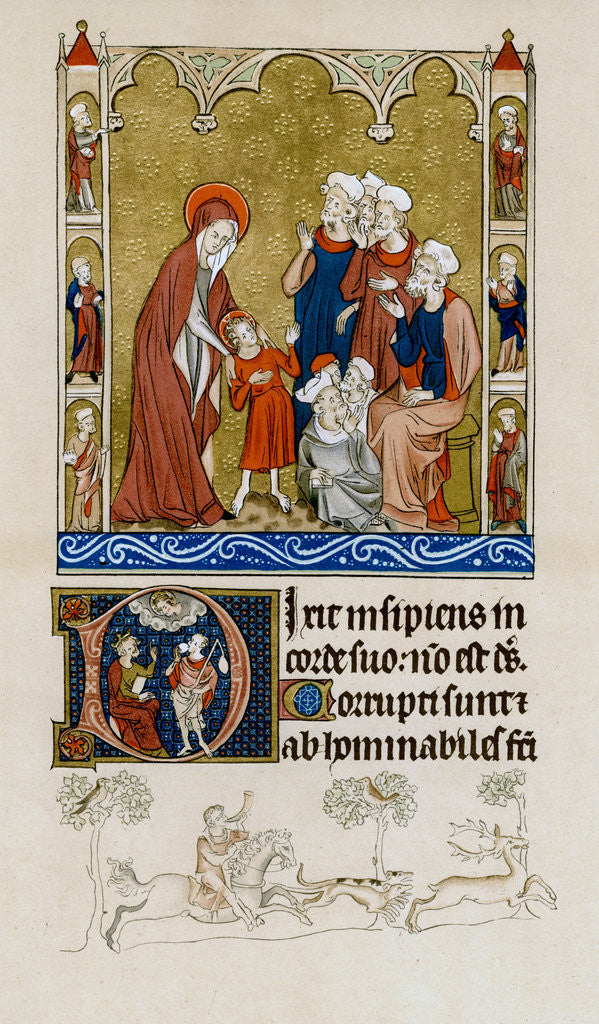 Dixit insipiens in
corde suo: nõ est dr̃s.
Corrupti sunt ⁊
abhominabiles fc̃i